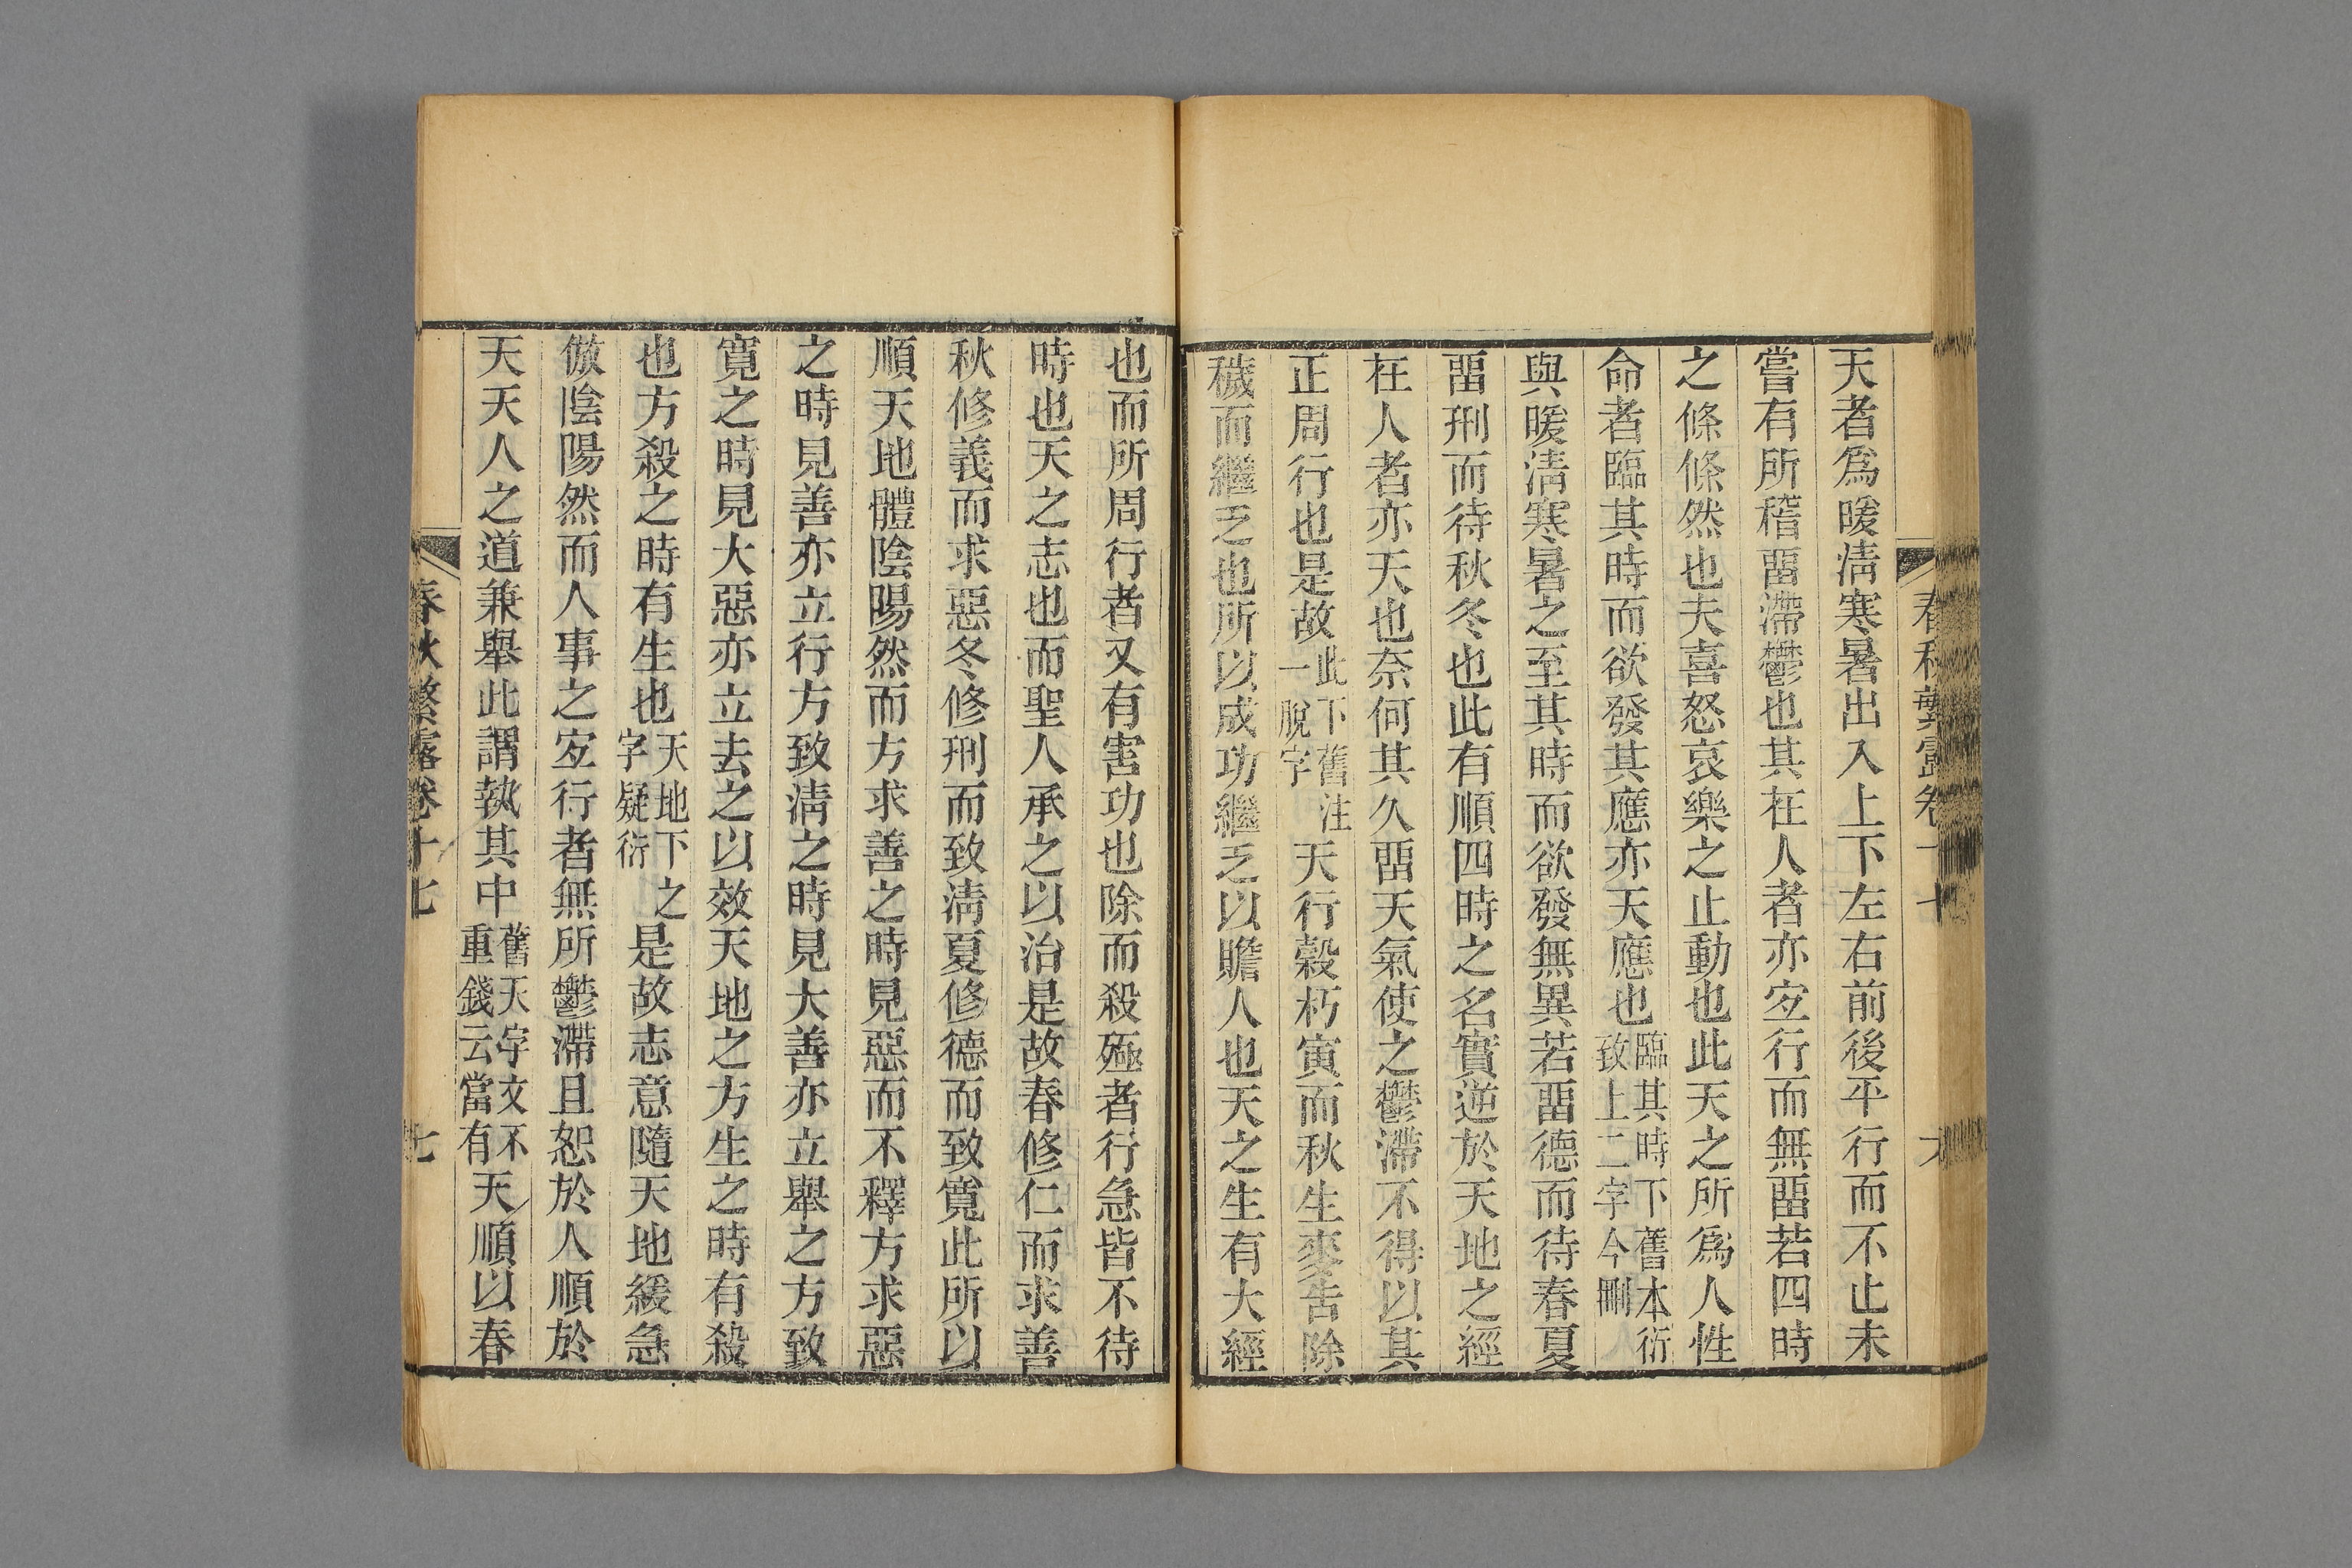 春秋繁露卷十七
天者爲暖淸寒暑出入上下左右前後平行而不止未
嘗有所稽畱滯鬱也其在人者亦宐行而無畱若四時
之條條然也夫喜怒哀樂之止動也此天之所爲人性
命者臨其時而欲發其應亦天應也臨其時下舊本衍致上二字今刪
與暖淸寒暑之至其時而欲發無異若畱德而待春夏
畱刑而待秋冬也此有順四時之名實逆於天地之經
在人者亦天也奈何其久畱天氣使之鬱滯不得以其
正周行也是故此下舊注一脫字天行穀朽寅而秋生麥告除
穢而繼乏也所以成功繼乏以贍人也天之生有大經
也而所周行者又有害功也除而殺殛者行急皆不待
時也天之志也而聖人承之以治是故春修仁而求善
秋修義而求惡冬修刑而致淸夏修德而致寬此所以
順天地體陰陽然而方求善之時見惡而不釋方求惡
之時見善亦立行方致淸之時見大善亦立舉之方致
寬之時見大惡亦立去之以效天地之方生之時有殺
也方殺之時有生也天地下之字疑衍是故志意隨天地緩急
倣陰陽然而人事之宐行者無所鬱滯且恕於人順於
天天人之道兼舉此謂執其中舊天字文不重錢云當有天順以春
春秋繁露卷十七
七